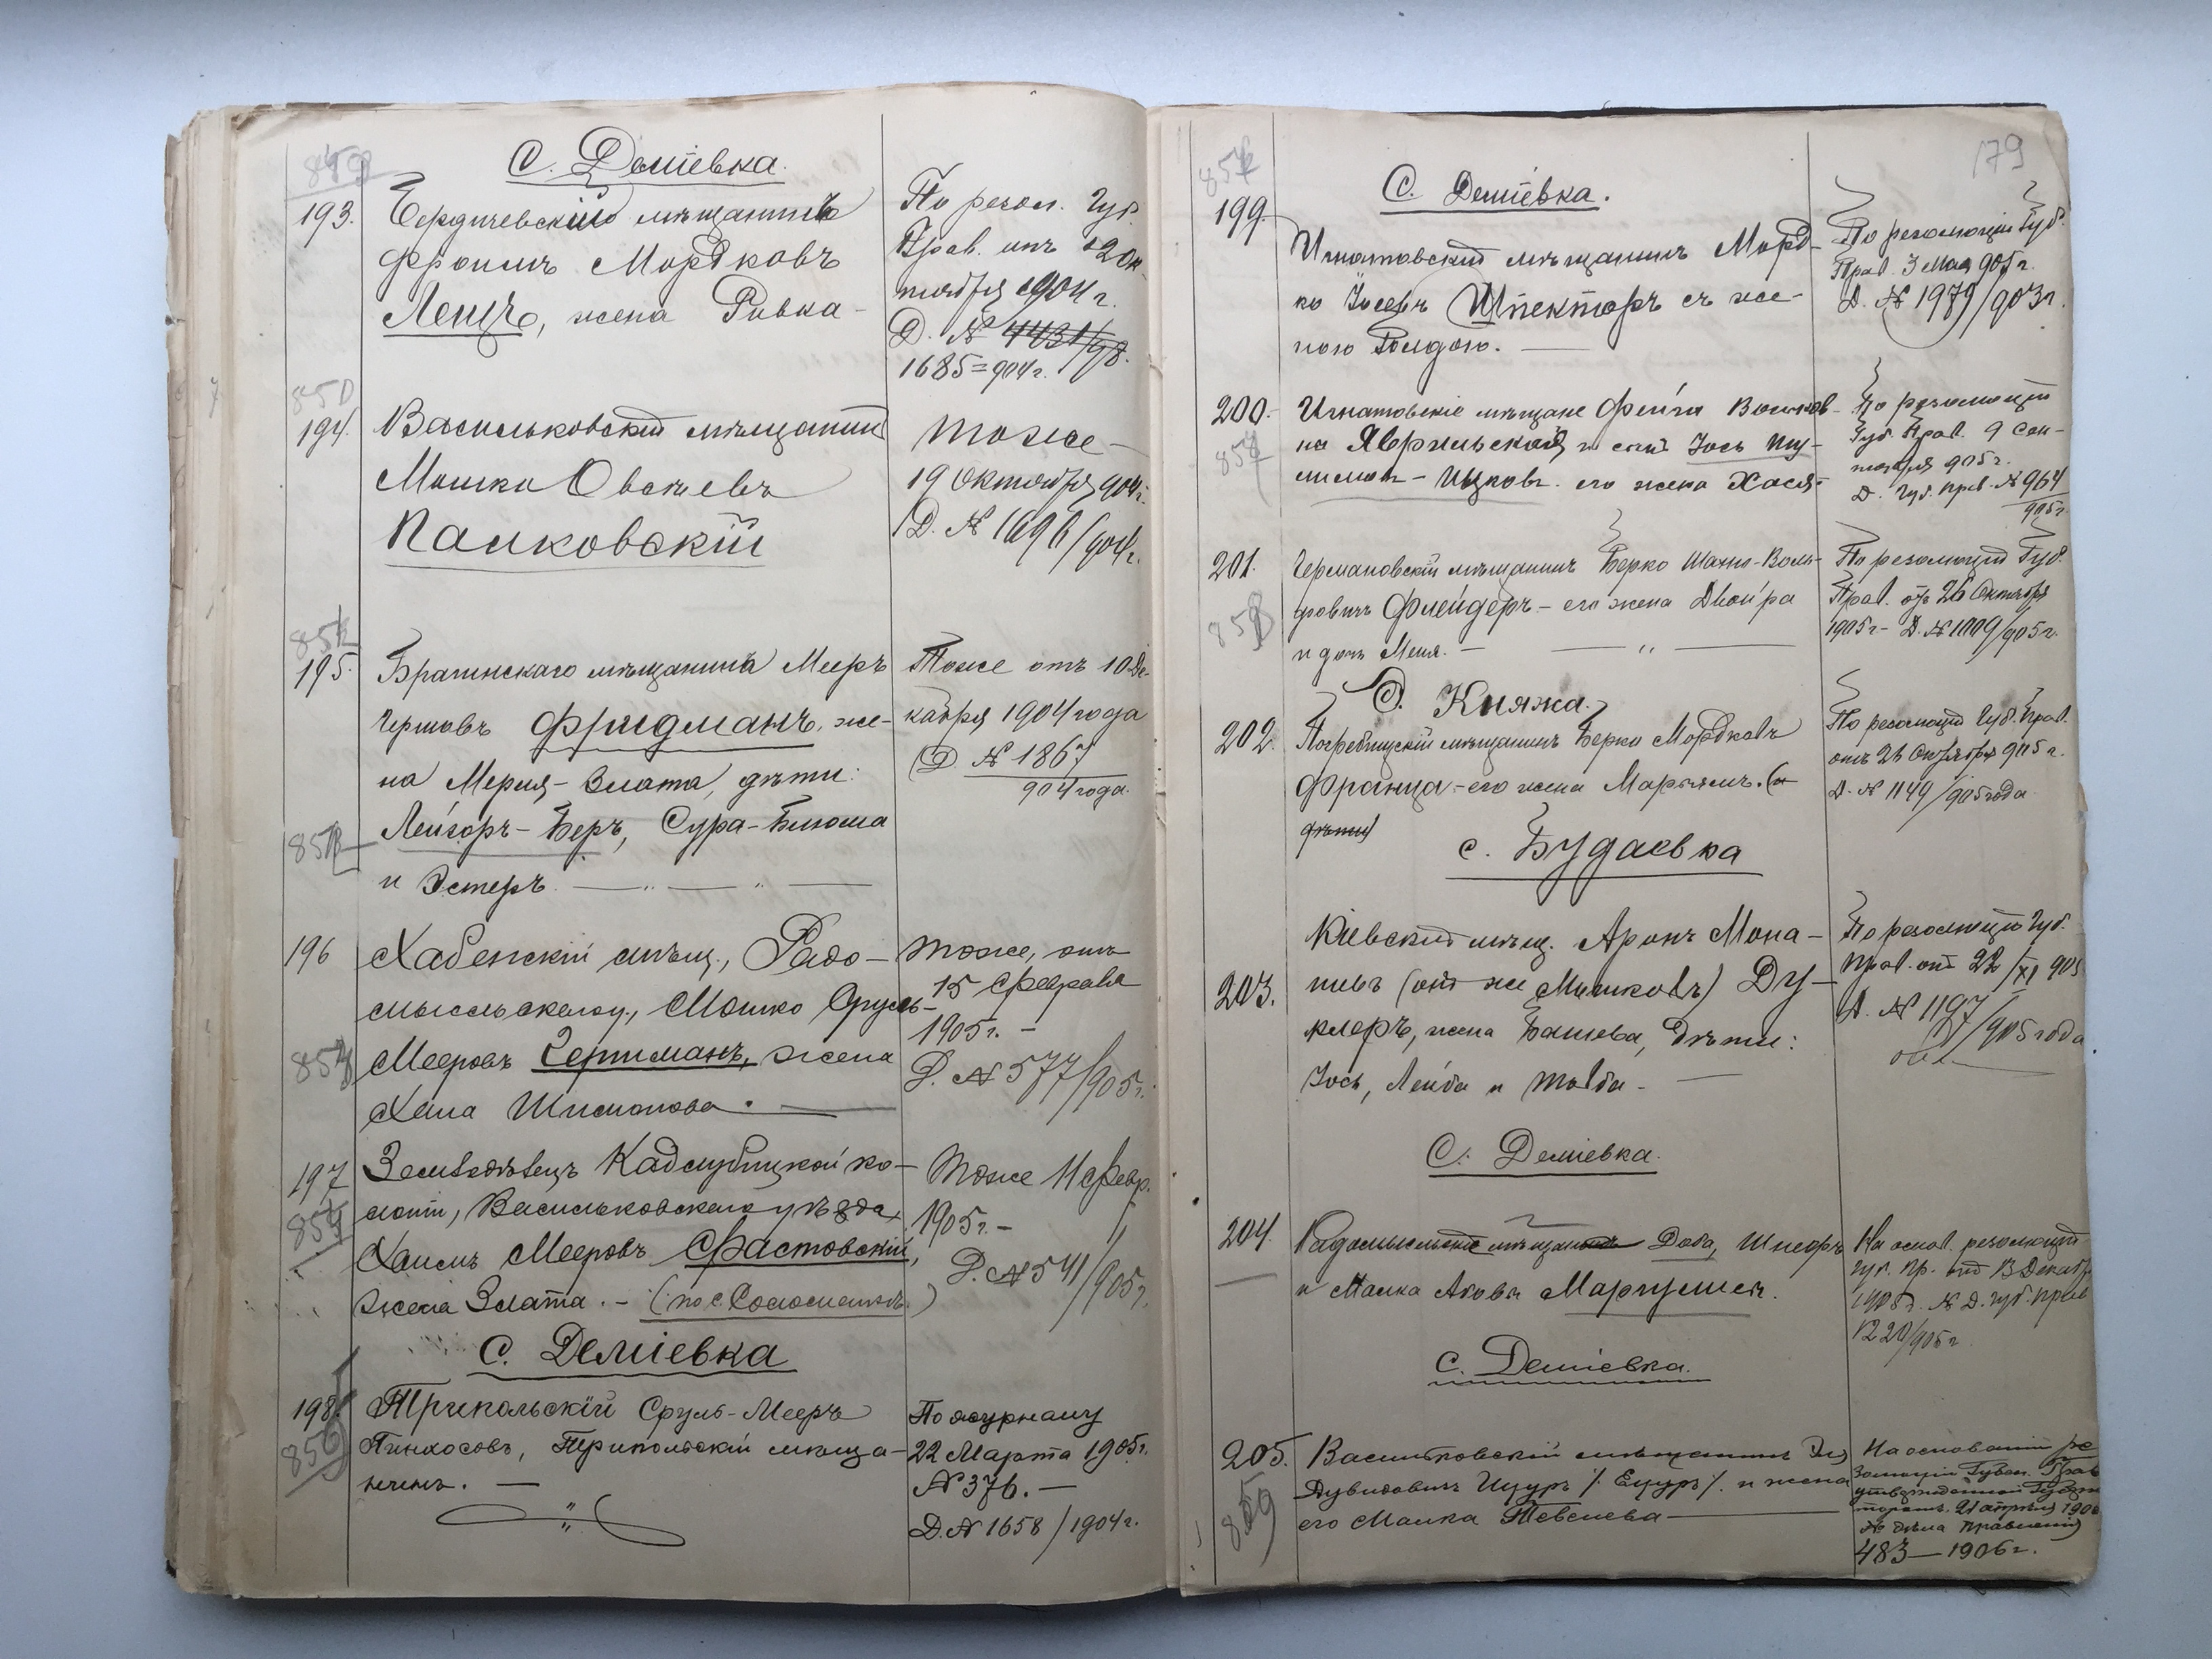 С. Деміевка.
193. Бердичевскій мѣщанинъ
Фроимъ Мордковъ
Ленцъ, жена Ривка
По резол. Губ.
Прав. отъ 12 Ок-
тября 1904 г.
Д. № 4431/98.
1685=904 г.
850
194. Васильковскій мѣщанинъ
Мошко Овсѣевъ
Палковскій
Тоже
19 Октября 904 г.
Д. № 1696/904 г.
195. Брагинскаго мѣщанина Мееръ
Гершовъ Фридманъ, же-
на Мерия-Злата, дѣти:
Лейзоръ-Беръ, Сура-Блюма
и Эстеръ
Тоже отъ 10 Де-
кабря 1904 года
Д. № 1867
904 года.
196 Хабенскій мѣщ., Радо-
мысльскаго у., Мошко Сруль-
Мееровъ Гершманъ, жена
Хана Шимонова.
Тоже, отъ
15 Февраля
1905 г. -
Д. № 577/905 г.
197 Земледѣлецъ Кадлубицкой ко-
лоніи, Васильковскаго уѣзда,
Хаимъ Мееровъ Фастовскій,
жена Злата. - (по с. Соломенкѣ.)
Тоже 11 Февр.
1905 г. -
Д. № 541/905 г.
С. Деміевка
198. Трипольскій Сруль-Мееръ
Пинхосовъ, Трипольскій мѣща-
нинъ. —
По журналу
22 Марта 1905 г.
№ 376. —
Д. № 1658/1904 г.
179
С. Деміевка.
199. Игнатовскій мѣщанинъ Морд-
ко Іосевъ Шпекторъ съ же-
ною Голдою. —
По резолюціи Губ.
Прав. 3 Мая 905 г.
Д. № 1979/903 г.
200. Игнатовскіе мѣщане Фейга Вольков-
на и сынъ Іось
Ицковъ. его жена Хася
По резолюціи
Губ. Прав. 9 Сен-
тября 905 г.
Д. Губ. Прав. № 964
905 г.
201. Германовскій мѣщанинъ Берко Шахно-Воль-
фовичъ Флейдеръ - его жена Двойра
и дочь Меня. —
По резолюціи Губ.
Прав. отъ 26 Октября
1905 г. - Д. № 1009/905 г.
С. Княжа.
202. Погребищскій мѣщанинъ Берко Мордковъ
Франца - его жена Марьямъ. (и
дѣти)
По резолюціи Губ. Прав.
отъ 26 Октября 905 г.
Д. № 1149/905 года
с. Будаевка
203. Кіевскій мѣщ. Аронъ Мона-
шевъ (онъ же Мишковъ) Ду-
клеръ, жена Башева, дѣти:
Іось, Лейба и Товба -
По резолюціи Губ.
Прав. отъ 22/XI 905
Д. № 1197/905 года
С. Деміевка.
204. Радомысльскіе мѣщане Доба, Шнеоръ
и Малка Аковы Маргулисъ.
На основ. резолюціи
Губ. Пр. отъ 13 Декабр.
1905 г. № Д. Губ. Прав
1220/905 г
С. Деміевка.
205. Васильковскій мѣщанинъ
Дувидовичъ Ицуръ /. Ецуръ/. и жена
его Малка Тевелева
859
На основаніи ре
золюціи Губерн. Прав
утвержденной Губерна
торомъ. 21 апрѣля 1906
№ дѣла Правленія
483 — 1906 г.